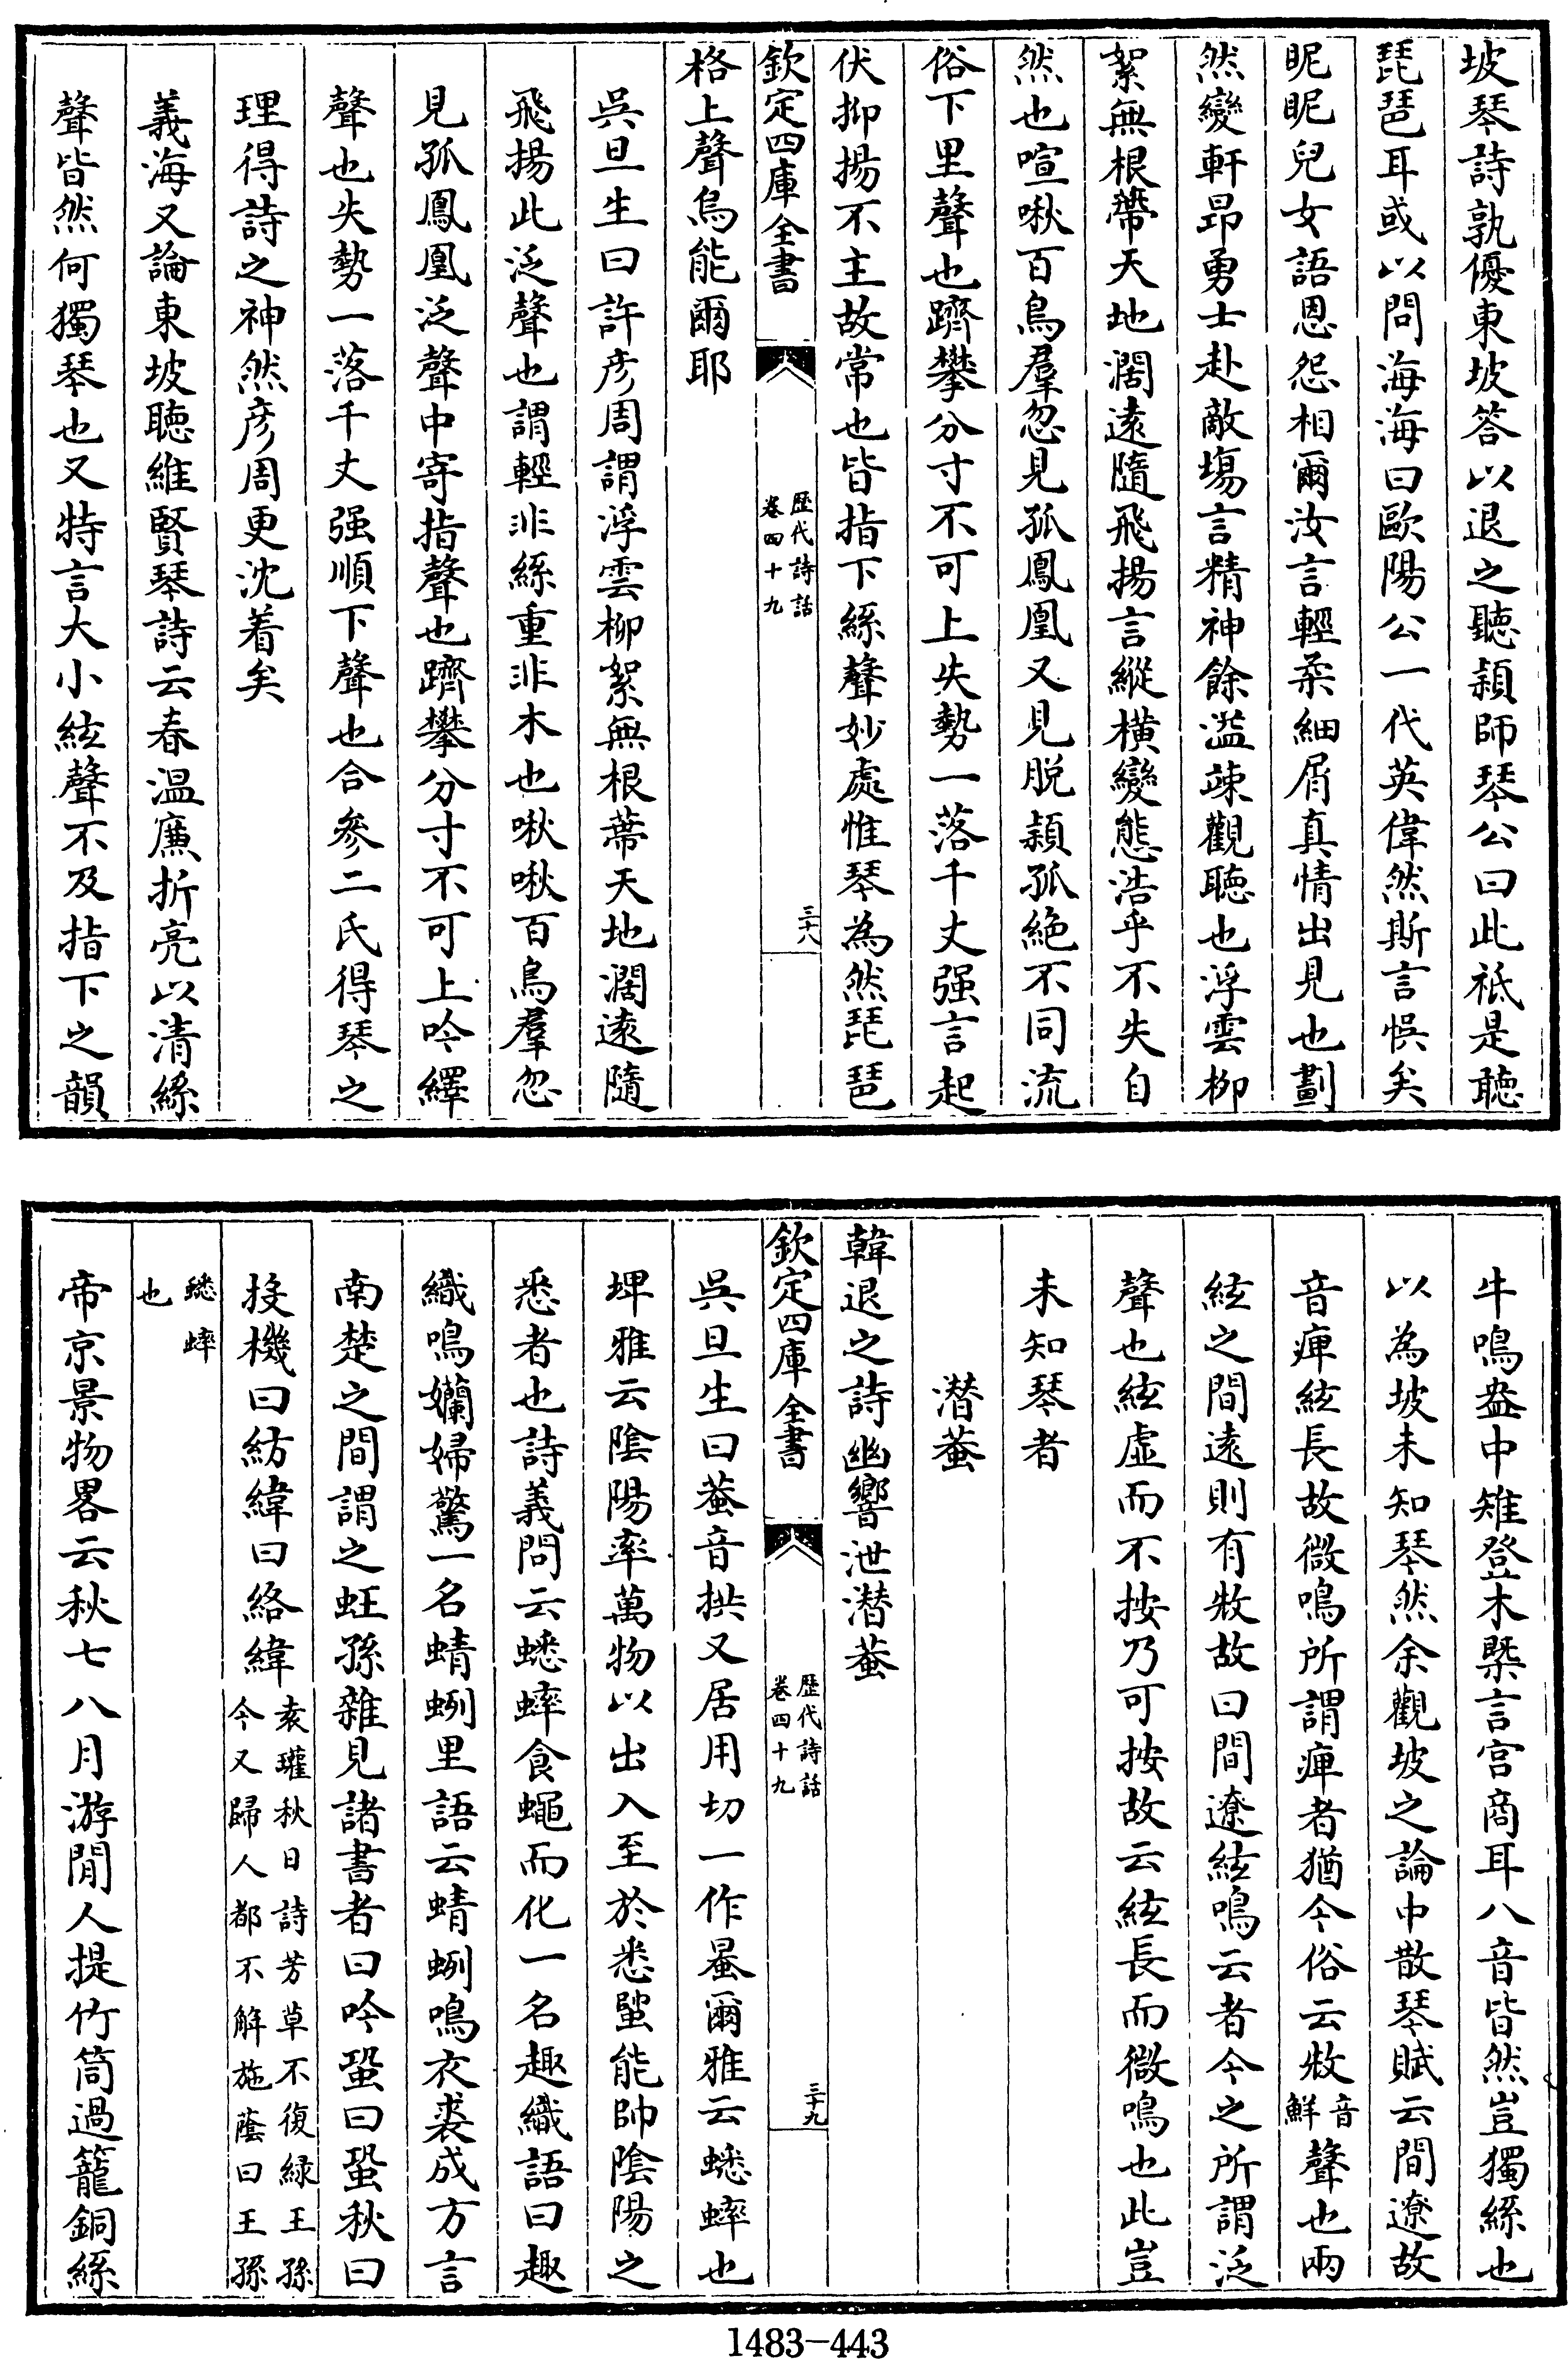 坡琴詩孰優東坡答以退之聽穎師琴公曰此祗是聽
琵琶耳或以問海海曰歐陽公一代英偉然斯言悞矣
昵昵兒女語恩怨相爾汝言輕柔細屑真情出見也劃
然變軒昂勇士赴敵塲言精神餘溢竦觀聽也浮雲柳
絮無根蔕天地濶遠隨飛揚言縱橫變態浩乎不失自
然也喧啾百鳥羣忽見孤鳳凰又見脱穎孤絶不同流
俗下里聲也躋攀分寸不可上失勢一落千丈强言起
伏抑揚不主故常也皆指下絲聲妙處惟琴為然琵琶
欽定四庫全書
歷代詩話
卷四十九
三十八
格上聲烏能爾耶
吳旦生曰許彦周謂浮雲柳絮無根蔕天地濶遠隨
飛揚此泛聲也謂輕非絲重非木也啾啾百鳥羣忽
見孤鳳凰泛聲中寄指聲也躋攀分寸不可上吟繹
聲也失勢一落千丈强順下聲也合參二氏得琴之
理得詩之神然彦周更沈着矣
義海又論東坡聽維賢琴詩云春温亷折亮以清絲
聲皆然何獨琴也又特言大小絃聲不及指下之韻
牛鳴盎中雉登木槩言宫商耳八音皆然豈獨絲也
以為坡未知琴然余觀坡之論中散琴賦云間遼故
音痺絃長故微鳴所謂痺者猶今俗云㪇
音
鮮
聲也兩
絃之間遠則有㪇故曰間遼絃鳴云者今之所謂泛
聲也絃虚而不按乃可按故云絃長而微鳴也此豈
未知琴者
潜蛬
韓退之詩幽響泄潜蛬
欽定四庫全書
歷代詩話
卷四十九
三十九
吳旦生曰蛬音拱又居用切一作蛩爾雅云蟋蟀也
埤雅云隂陽率萬物以出入至於悉蟋能帥隂陽之
悉者也詩義問云蟋蟀食蠅而化一名趣織語曰趣
織鳴嬾婦驚一名蜻蛚里語云蜻蛚鳴衣裘成方言
南楚之間謂之蚟孫雜見諸書者曰吟蛩曰蛩秋曰
投機曰紡緯曰絡緯
袁瓘秋日詩芳草不復緑王孫
今又歸人都不解施蔭曰王孫
蟋蟀
也
帝京景物畧云秋七八月游閒人提竹筒過籠銅絲
1483-443